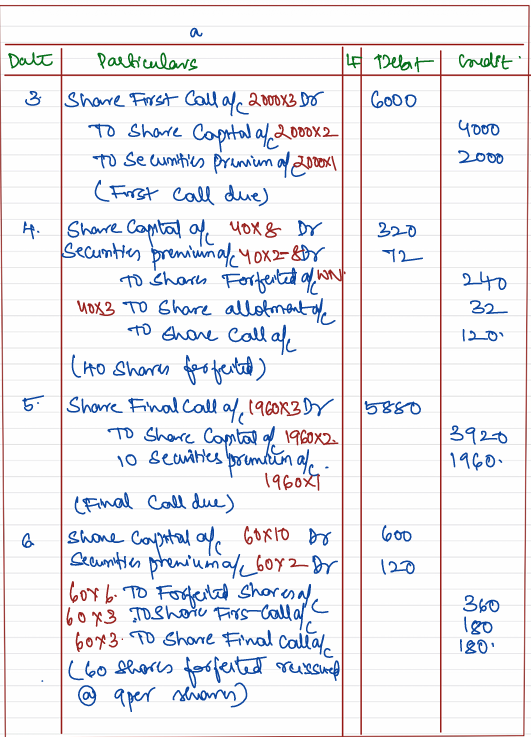 a
Date Particulars LF Debit Credit
3 Share First Call a/c 2000x3 Dr 6000
To Share Capital a/c 2000x2 4000
To Securities premium a/c 2000x1 2000
(First call due)
4. Share Capital a/c 40x8 Dr 320
Securities premium a/c 40x2-8 Dr 72
To Shares Forfeited a/c WN. 240
40x3 To Share allotment a/c 32
To Share Call a/c 120.
(40 Shares forfeited)
5. Share Final Call a/c 1960x3 Dr 5880
To Share Capital a/c 1960x2. 3920
To Securities premium a/c. 1960.
1960x1
(Final Call due)
6 Share Capital a/c 60x10 Dr 600
Securities premium a/c 60x2 Dr 120
60x6. To Forfeited Shares a/c 360
60x3. To Share Firs-Call a/c 180
60x3. To Share Final Call a/c 180.
(60 Shares forfeited reissued
@ 9 per shares)